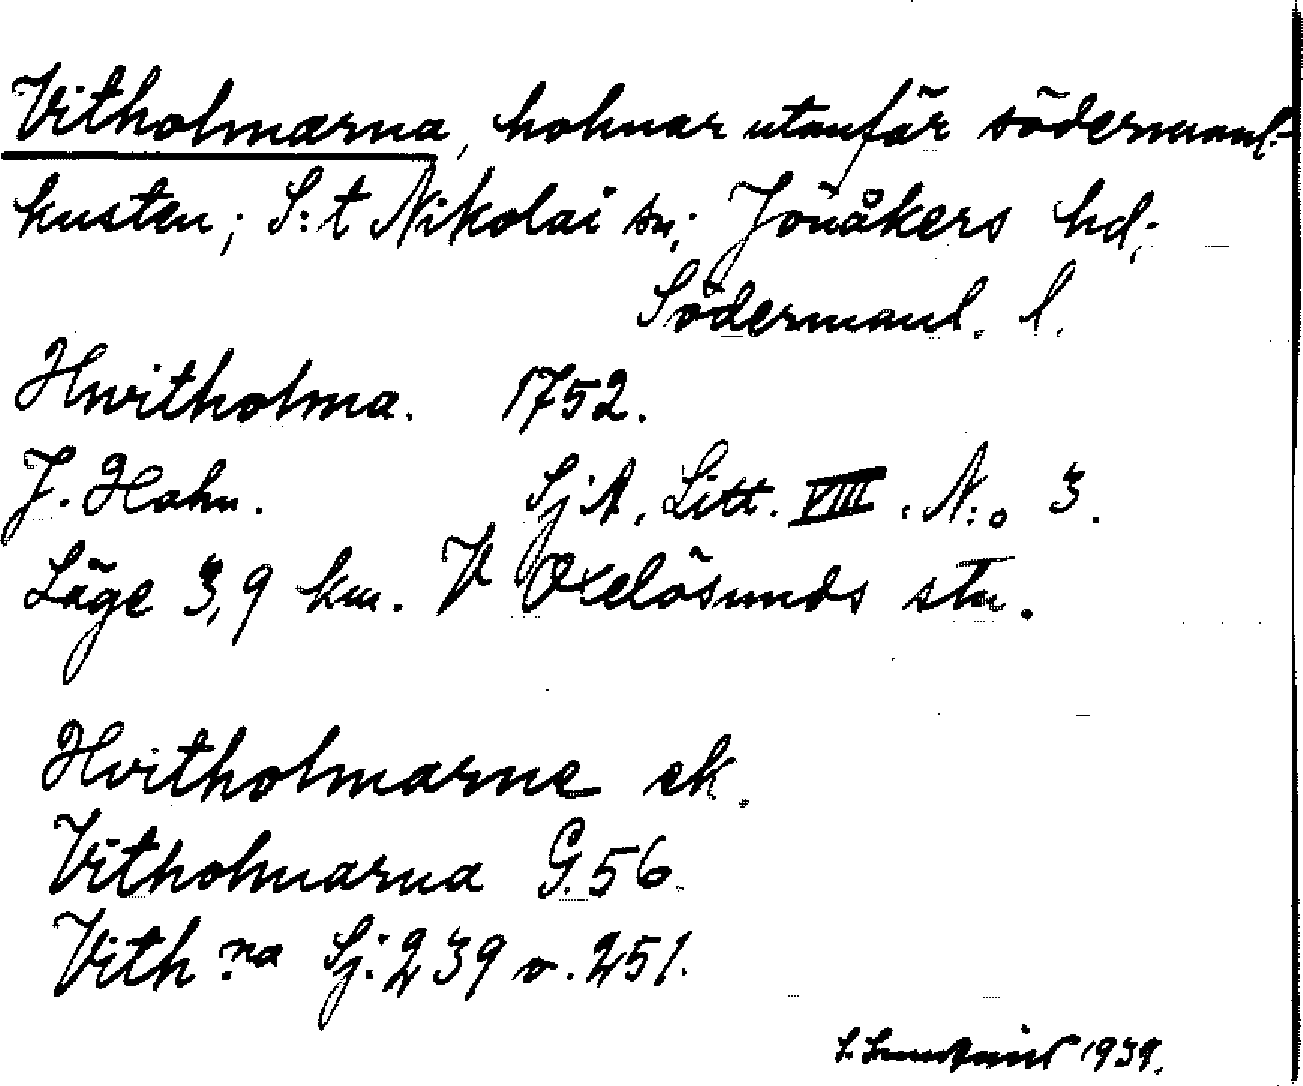 Vitholmarna, holmar utanför södermanl.-
kusten; S:t Nikolai sn; Jönåkers hd;
Södermanl. l.
Hwitholma. 1752.
J. Hahn. SjA, Litt. VIII. N:o 3.
Läge 3,9 km. V Oxelösunds stn.
Hvitholmarne ek.
Vitholmarna G.56.
Vith:na Sj:239 o. 251.
1939.